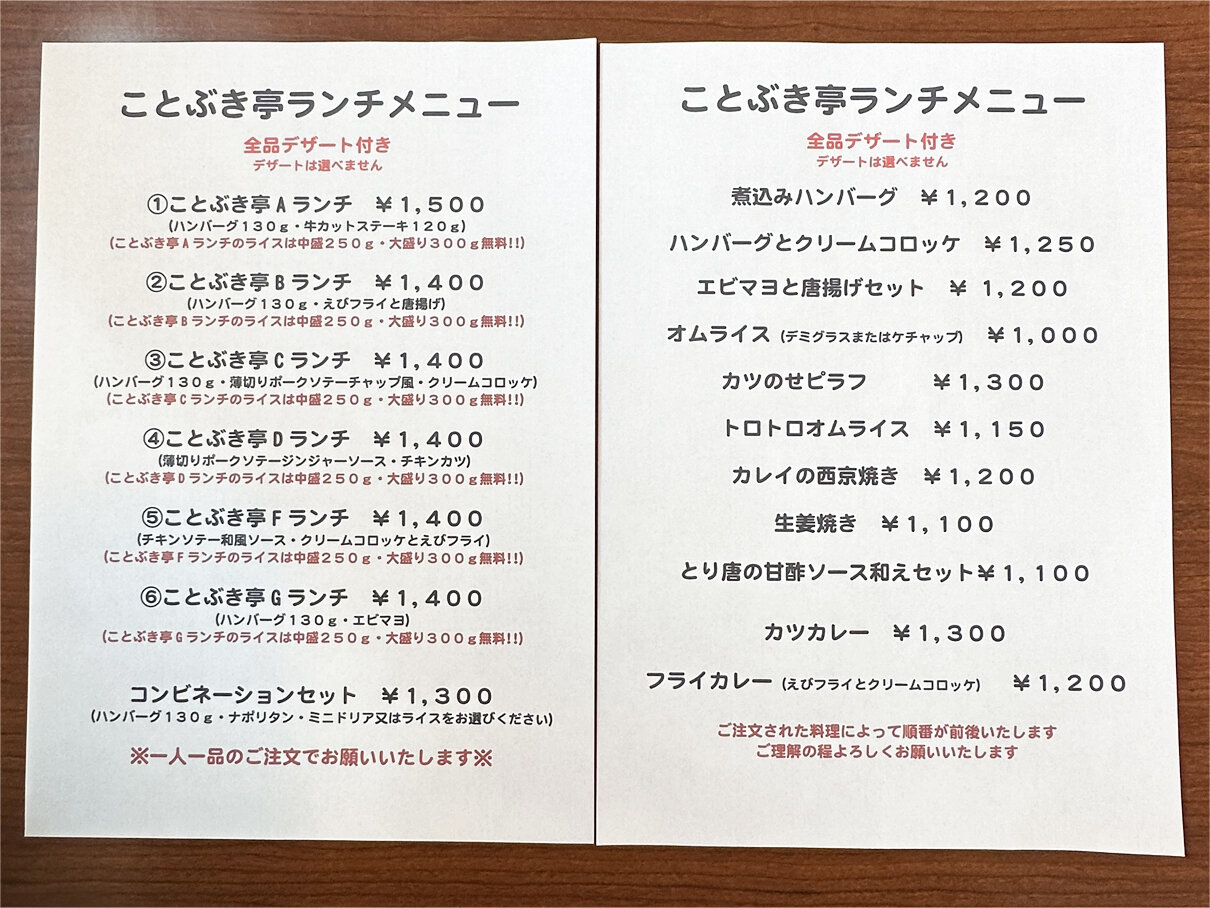 ことぶき亭ランチメニュー
全品デザート付き
デザートは選べません
①ことぶき亭Aランチ ￥１，５００
(ハンバーグ１３０ｇ・牛カットステーキ１２０ｇ)
(ことぶき亭Aランチのライスは中盛２５０ｇ・大盛り３００ｇ無料!!)
②ことぶき亭Bランチ ￥１，４００
(ハンバーグ１３０ｇ・えびフライと唐揚げ)
(ことぶき亭Bランチのライスは中盛２５０ｇ・大盛り３００ｇ無料!!)
③ことぶき亭Cランチ ￥１，４００
(ハンバーグ１３０ｇ・薄切りポークソテーチャップ風・クリームコロッケ)
(ことぶき亭Cランチのライスは中盛２５０ｇ・大盛り３００ｇ無料!!)
④ことぶき亭Dランチ ￥１，４００
(薄切りポークソテージンジャーソース・チキンカツ)
(ことぶき亭Dランチのライスは中盛２５０ｇ・大盛り３００ｇ無料!!)
⑤ことぶき亭Fランチ ￥１，４００
(チキンソテー和風ソース・クリームコロッケとえびフライ)
(ことぶき亭Fランチのライスは中盛２５０ｇ・大盛り３００ｇ無料!!)
⑥ことぶき亭Gランチ ￥１，４００
(ハンバーグ１３０ｇ・エビマヨ)
(ことぶき亭Gランチのライスは中盛２５０ｇ・大盛り３００ｇ無料!!)
コンビネーションセット ￥１，３００
(ハンバーグ１３０ｇ・ナポリタン・ミニドリア又はライスをお選びください)
※一人一品のご注文でお願いいたします※
ことぶき亭ランチメニュー
全品デザート付き
デザートは選べません
煮込みハンバーグ ￥１，２００
ハンバーグとクリームコロッケ ￥１，２５０
エビマヨと唐揚げセット ￥ １，２００
オムライス (デミグラスまたはケチャップ) ￥１，０００
カツのせピラフ ￥１，３００
トロトロオムライス ￥１，１５０
カレイの西京焼き ￥１，２００
生姜焼き ￥１，１００
とり唐の甘酢ソース和えセット￥１，１００
カツカレー ￥１，３００
フライカレー (えびフライとクリームコロッケ) ￥１，２００
ご注文された料理によって順番が前後いたします
ご理解の程よろしくお願いいたします